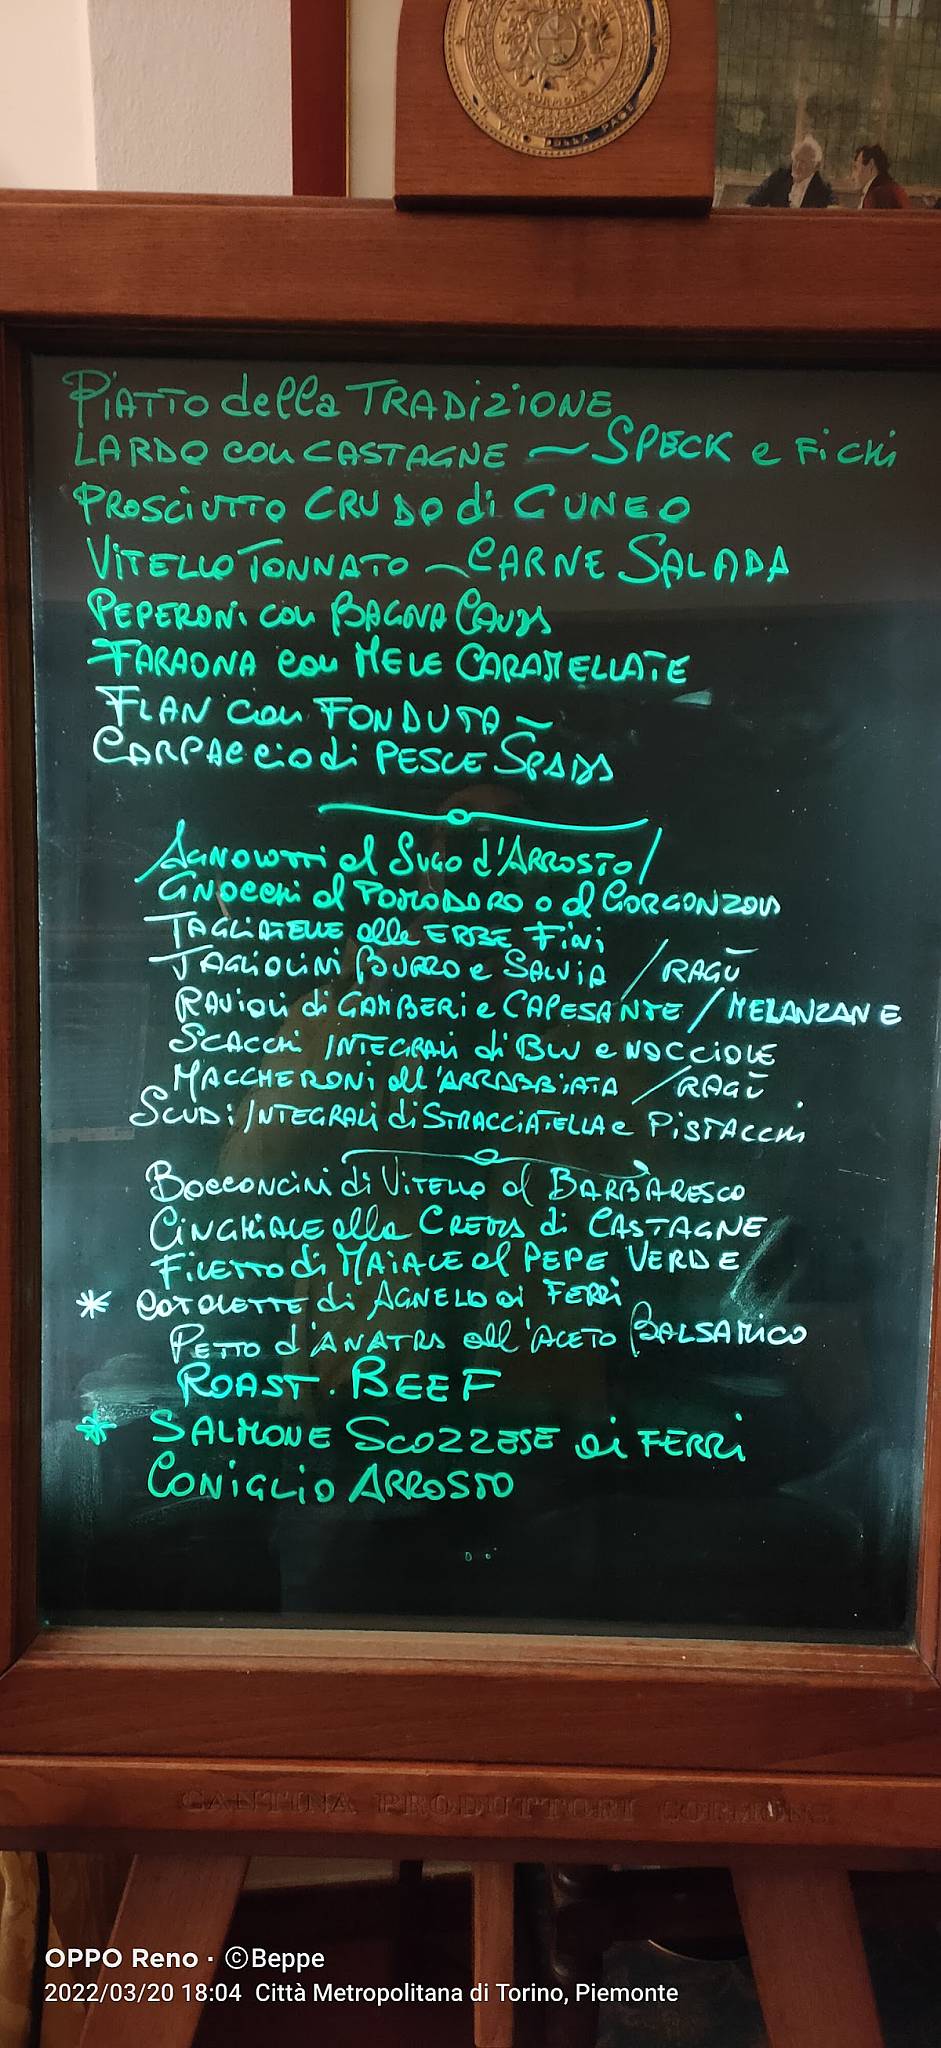 CORMONS
VINO DELLA PACE
PIATTO della TRADIZIONE
LARDO con CASTAGNE ~ SPECK e FICHI
PROSCIUTTO CRUDO di CUNEO
VITELLO TONNATO ~ CARNE SALADA
PEPERONI con BAGNA CAUDA
FARAONA con MELE CARAMELLATE
FLAN con FONDUTA ~
CARPACCIO di PESCE SPADA
AGNOLOTTI al SUGO d'ARROSTO/
GNOCCHI al POMODORO o al GORGONZOLA
TAGLIATELLE alle ERBE FINI
TAGLIOLINI BURRO e SALVIA / RAGÙ
RAVIOLI di GAMBERI e CAPESANTE / MELANZANE
SCACCHI INTEGRALI di BLU e NOCCIOLE
MACCHERONI all'ARRABBIATA / RAGÙ
SCUDI INTEGRALI di STRACCIATELLA e PISTACCHI
BOCCONCINI di VITELLO al BARBARESCO
CINGHIALE alla CREMA di CASTAGNE
FILETTO di MAIALE al PEPE VERDE
* COTOLETTE di AGNELLO ai FERRI
PETTO d'ANATRA all'ACETO BALSAMICO
ROAST-BEEF
* SALMONE SCOZZESE ai FERRI
CONIGLIO ARROSTO
CANTINA PRODUTTORI CORMONS
OPPO Reno · ©Beppe
2022/03/20 18:04 Città Metropolitana di Torino, Piemonte